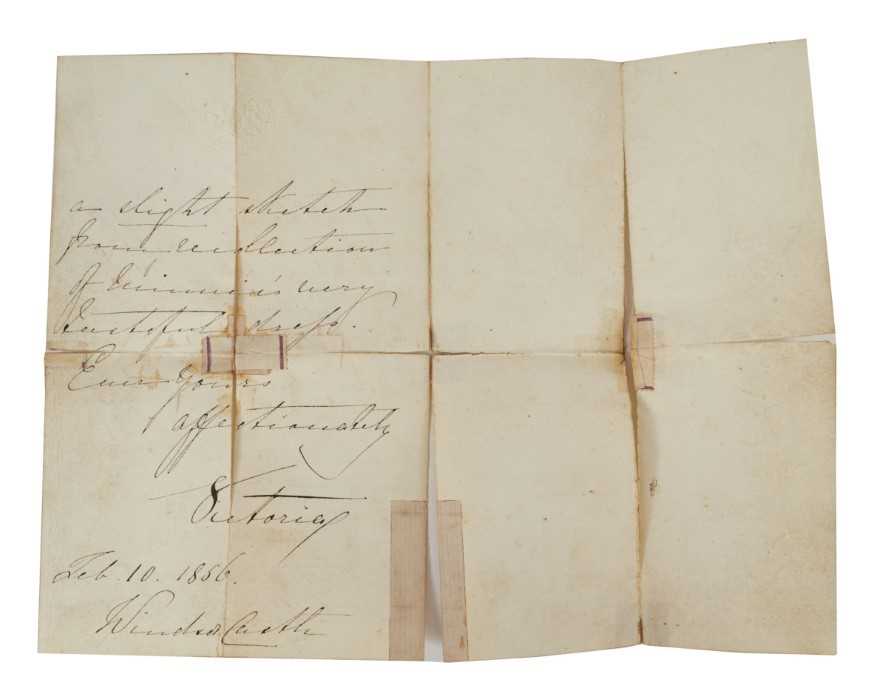 a slight sketch
from recollection
of Minnie's very
tasteful dress.
Ever yours
affectionately
Victoria
Feb. 10. 1856.
Windsor Castle